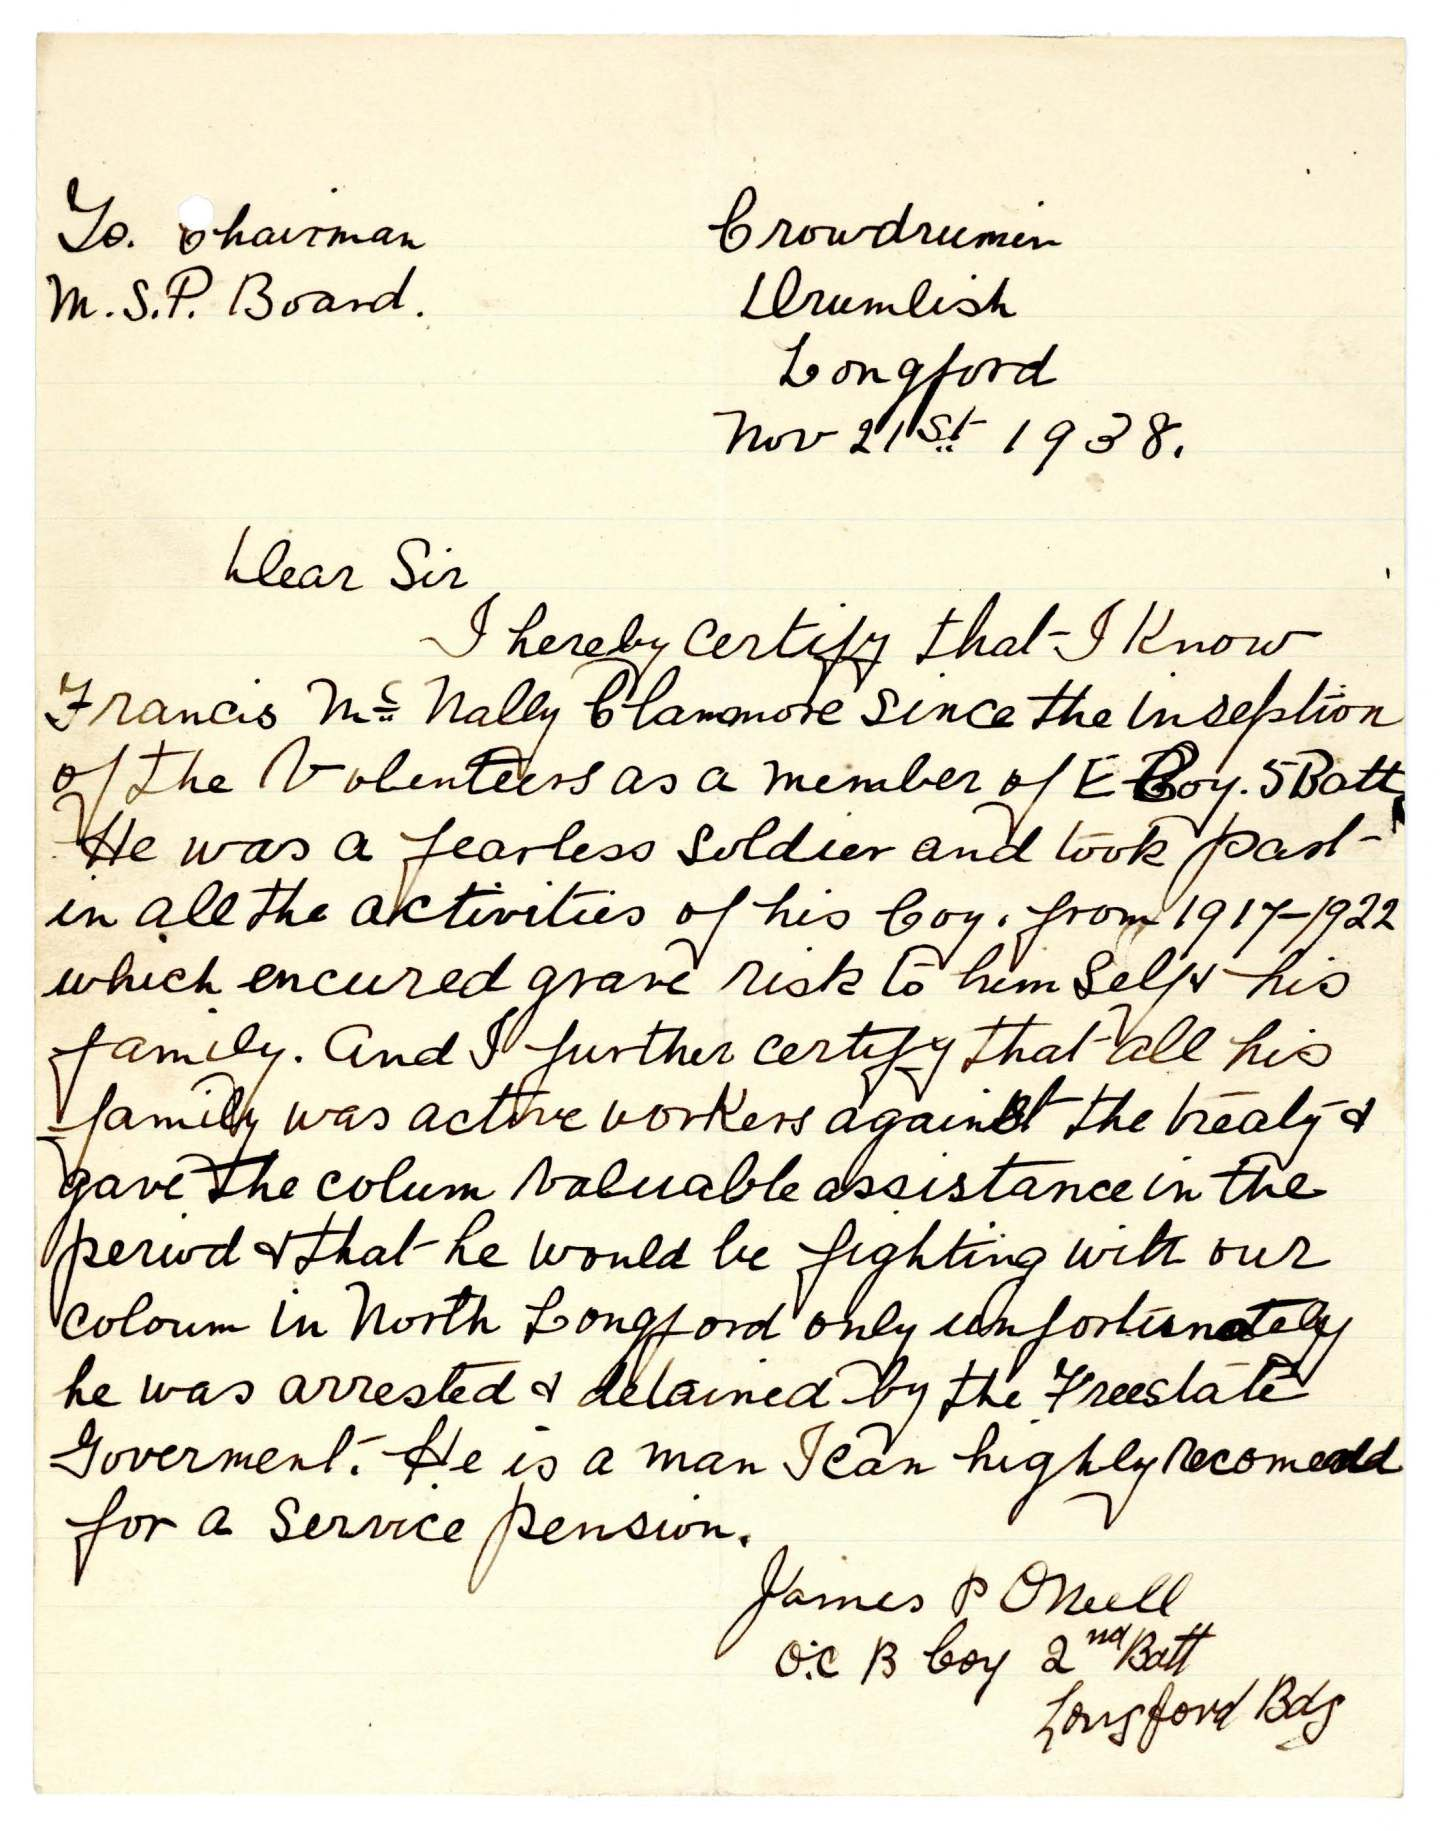 To. Chairman
M.S.P. Board.
Crowdrumin
Drumlish
Longford
Nov 21st 1938.
Dear Sir
I hereby certify that I Know
Francis Mc Nally Clanmore since the inseption
of the Volenteers as a member of E Coy. 5 Batt,
He was a fearless soldier and took part
in all the activities of his Coy. from 1917-1922
which encured grave risk to him self & his
family. And I further certify that all his
family was active workers against the treaty &
gave the colum valuable assistance in the
period & that he would be fighting with our
coloum in North Longford only unfortunately
he was arrested & detained by the Freestate
Goverment. He is a man I can highly recomend
for a service pension.
James P ONeill
O.C B Coy 2nd Batt
Longford Bdg